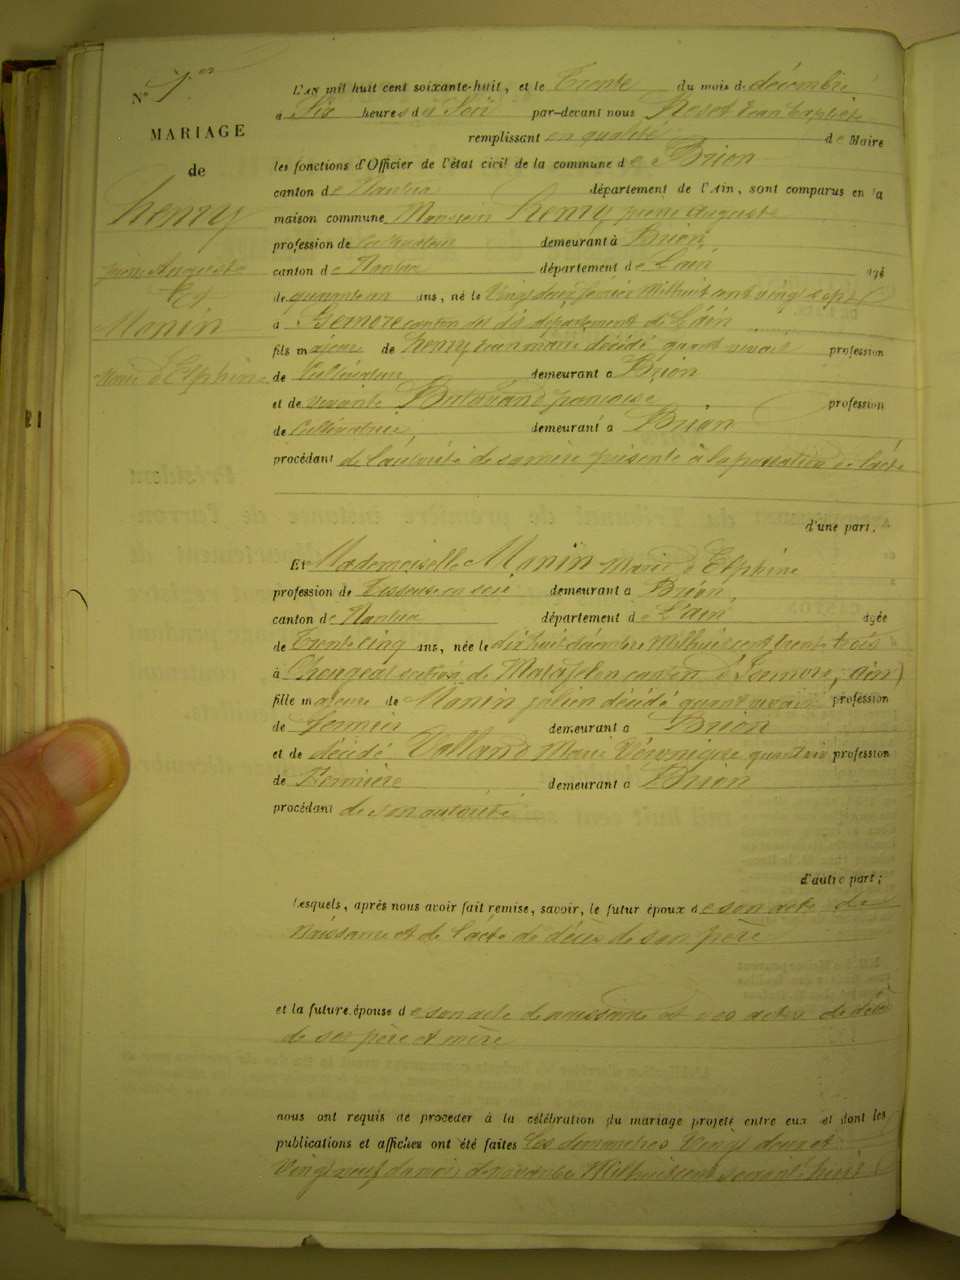 N° 7.
MARIAGE
de
henry
pierre Auguste
Et
Monin
Marie d Elphine
L'AN mil huit cent soixante-huit, et le Trente du mois de décembre
à Six heures du Soir par-devant nous Jean baptiste
remplissant en qualité de Maire
les fonctions d'Officier de l'état civil de la commune de Brion
canton de Nantua département de l'Ain, sont comparus en la
maison commune Monsieur henry pierre auguste
profession de Cultivateur demeurant à Brion
canton de Nantua département de L'ain âgé
de quarante un ans, né le Vingt deux février Mil huit cent vingt sept
à canton du dit département de L'ain
fils majeur de henry jean marie décédé quand vivait profession
de Cultivateur demeurant à Brion
et de vivante françoise profession
de Cultivatrice, demeurant à Brion
procédant de l'autorité de sa mère présente à la passation de l'acte
d'une part.
Et Mademoiselle Monin Marie d Elphine
profession de Tisseuse en soie demeurant à Brion,
canton de Nantua département de L'ain âgée
de Trente cinq ans, née le dix huit décembre Mil huit cent trente trois
à section de canton d' ain)
fille majeure de Monin décédé quand vivait profession
de fermier demeurant à Brion
et de décédé Marie Véronique profession
de Fermière demeurant à Brion
procédant de son autorité
d'autre part;
Lesquels, après nous avoir fait remise, savoir, le futur époux de son acte de
Naissance et de l'acte de décès de son père
et la future épouse de son acte de naissance et des actes de décès
de ses père et mère
nous ont requis de procéder à la célébration du mariage projeté entre eux et dont les
publications et affiches ont été faites Les dimanches Vingt deux et
Vingt neuf du mois de novembre Mil huit cent soixante huit